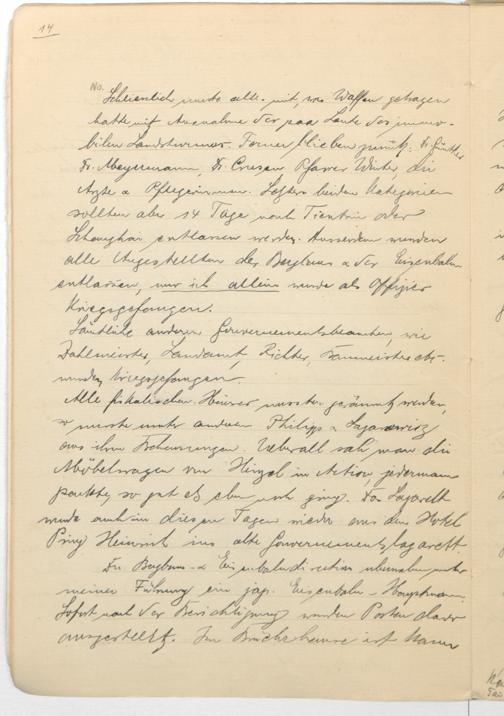 14
No.
Schliesslich musste alle mit, was Waffen getragen
hatte mit Ausnahme der paar Leute des immo-
bilen Landsturmes. Ferner blieben zurück: Dr. Günther
Dr. Meyermann, Dr. Crusen Pfarrer Winter, die
Ärzte & Pflegerinnen. Letztere beiden Kategorien
sollten aber 14 Tage nach Tientsin oder
Schanghai entlassen werden. Ausserdem wurden
alle Angestellten des Bergbaus & der Eisenbahn
entlassen, nur ich allein wurde als Offizier
Kriegsgefangen.
Sämtliche anderen Gouvernementsbeamten, wie
Zahlmeister, Landamt, Richter, etc.
wurden Kriegsgefangen.
Alle fiskalischen Häuser mussten geräumt werden,
so musste unter anderen Philipp &
aus ihren Behausungen. Ueberall sah man die
Möbelwagen von in Action, jedermann
packte, so gut es eben noch ging. Das Lazarett
wurde auch in diesen Tagen wieder aus dem Hotel
Prinz Heinrich ins alte Gouvernementslazarett.
Die Bergbau- & Eisenbahndirection übernahm unter
meiner Führung ein jap. Eisenbahn-Hauptmann.
Sofort nach der Besichtigung wurden Posten davor
ausgestellt. Im ist kaum